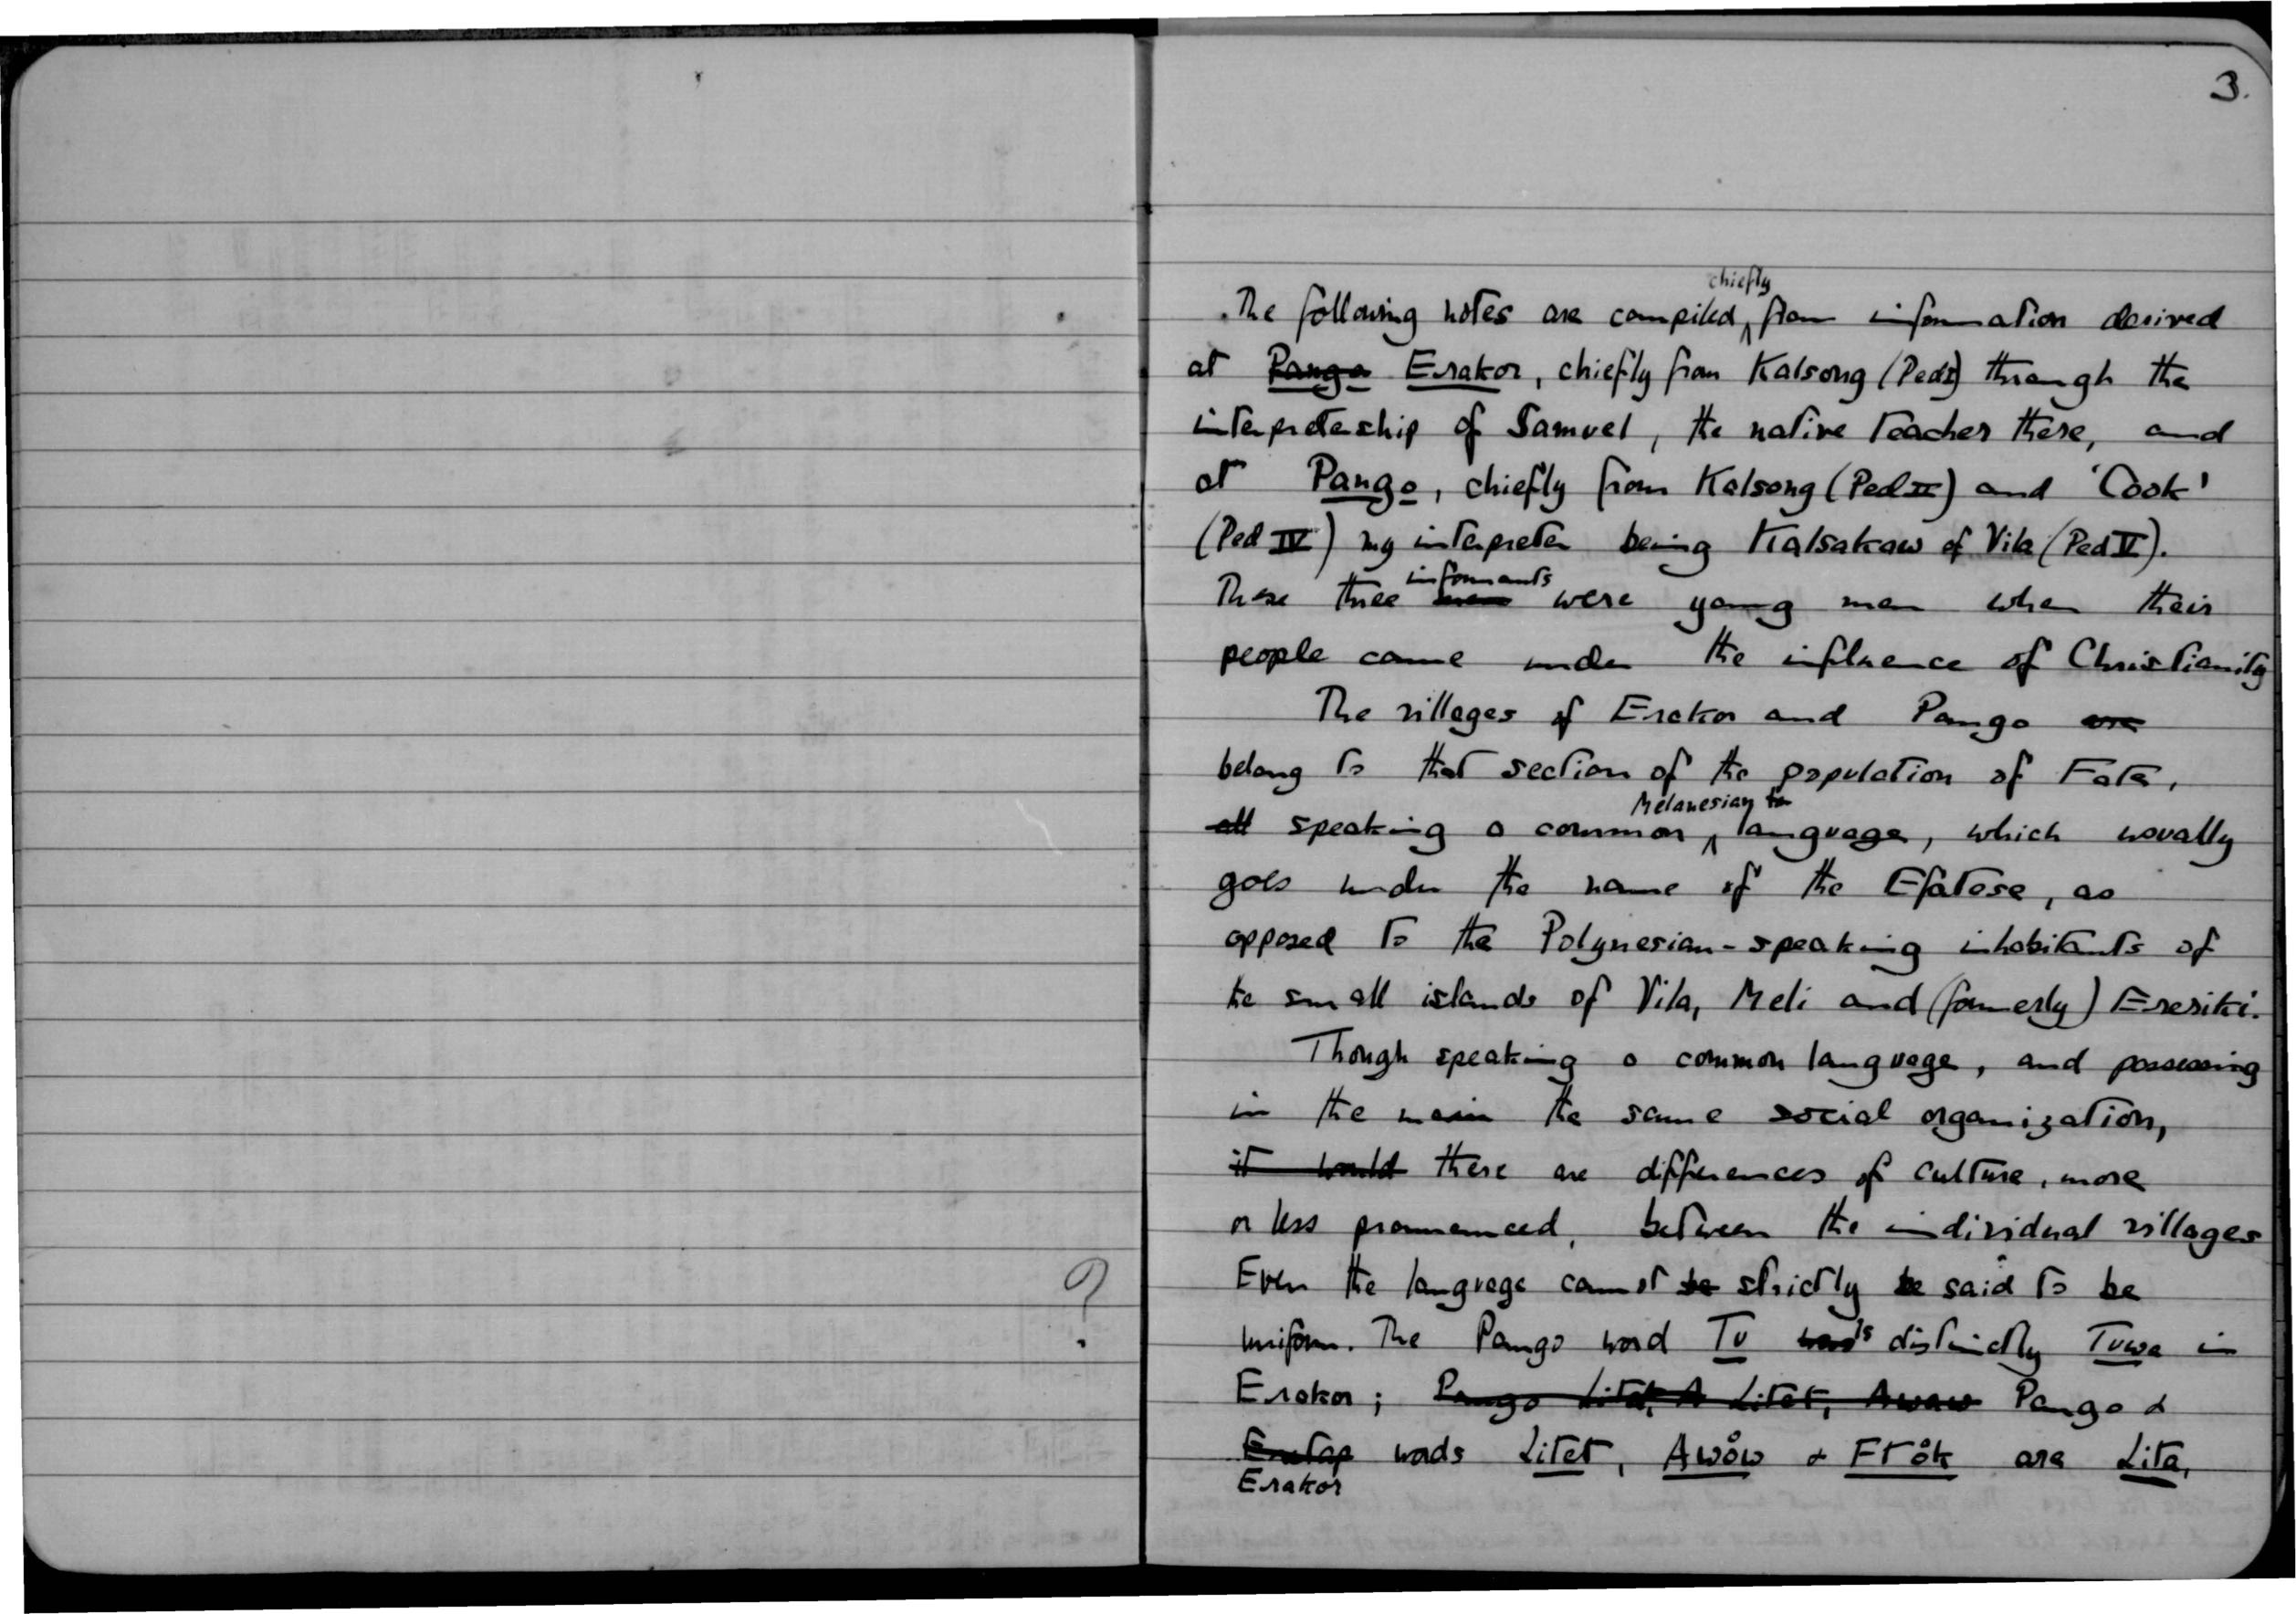 3.
The following notes are compiled chiefly from information derived
at Pango Erakor, chiefly from Kalsong (Ped I) through the
interpretership of Samuel, the native teacher there, and
at Pango, chiefly from Kalsong (Ped II) and 'Cook'
(Ped IV) my interpreter being Kalsakaw of Vila (Ped V).
These three men informants were young men when their
people came under the influence of Christianity
The villages of Erakor and Pango are
belong to that section of the population of Fate,
all speaking a common Melanesian language, which usually
goes under the name of the Efatese, as
opposed to the Polynesian-speaking inhabitants of
the small islands of Vila, Meli and (formerly) Eresiki.
Though speaking a common language, and possessing
in the main the same social organization,
it would there are differences of culture, more
or less pronounced, between the individual villages
Even the language cannot be strictly be said to be
?
uniform. The Pango word Tu is distinctly Tuwa in
Erakor; Pango Litet, A Litet, Awaw Pango &
Erakor words Litet, Awåw & Ftåk are Lita,